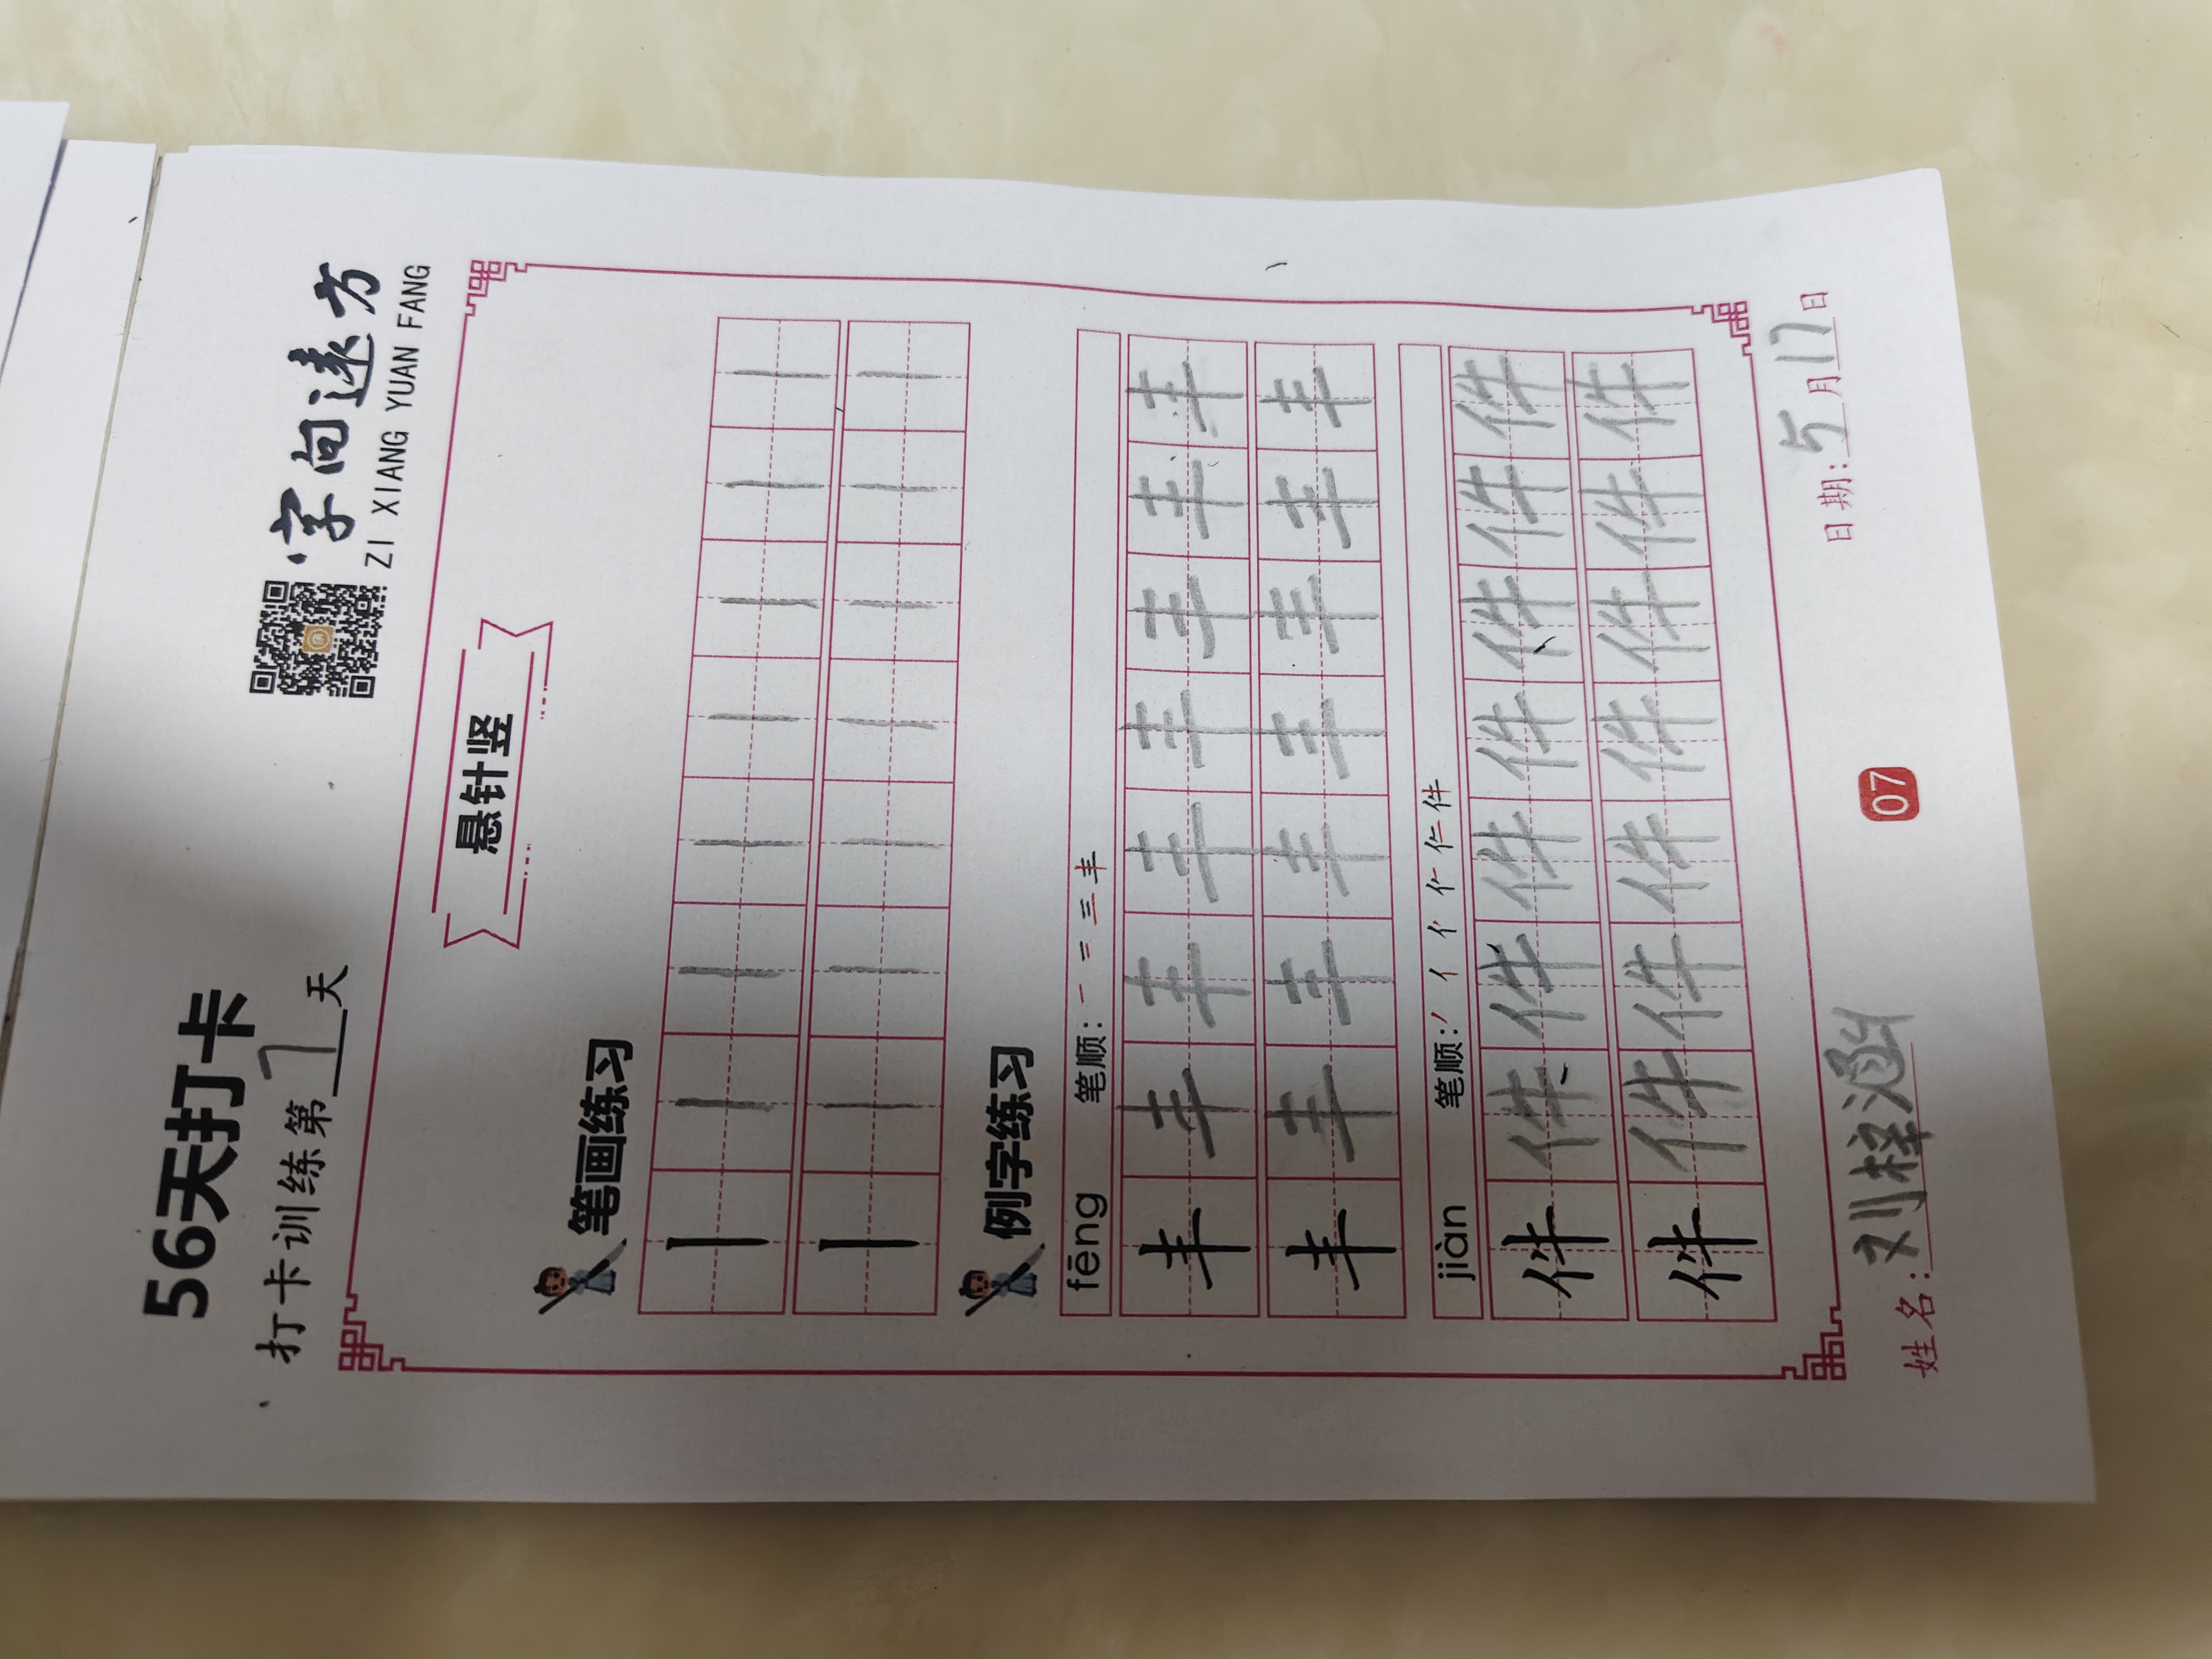 56天打卡
打卡训练第7天
字向远方
ZI XIANG YUAN FANG
悬针竖
笔画练习
丨丨丨丨丨丨丨丨
丨丨丨丨丨丨丨丨
例字练习
fēng 笔顺：一 二 三 丰
丰丰丰丰丰丰丰丰
丰丰丰丰丰丰丰丰
jiàn 笔顺：丿 亻 亻 仁 件
件件件件件件件件
件件件件件件件件
姓名：刘梓涵 日期：5月17日
07